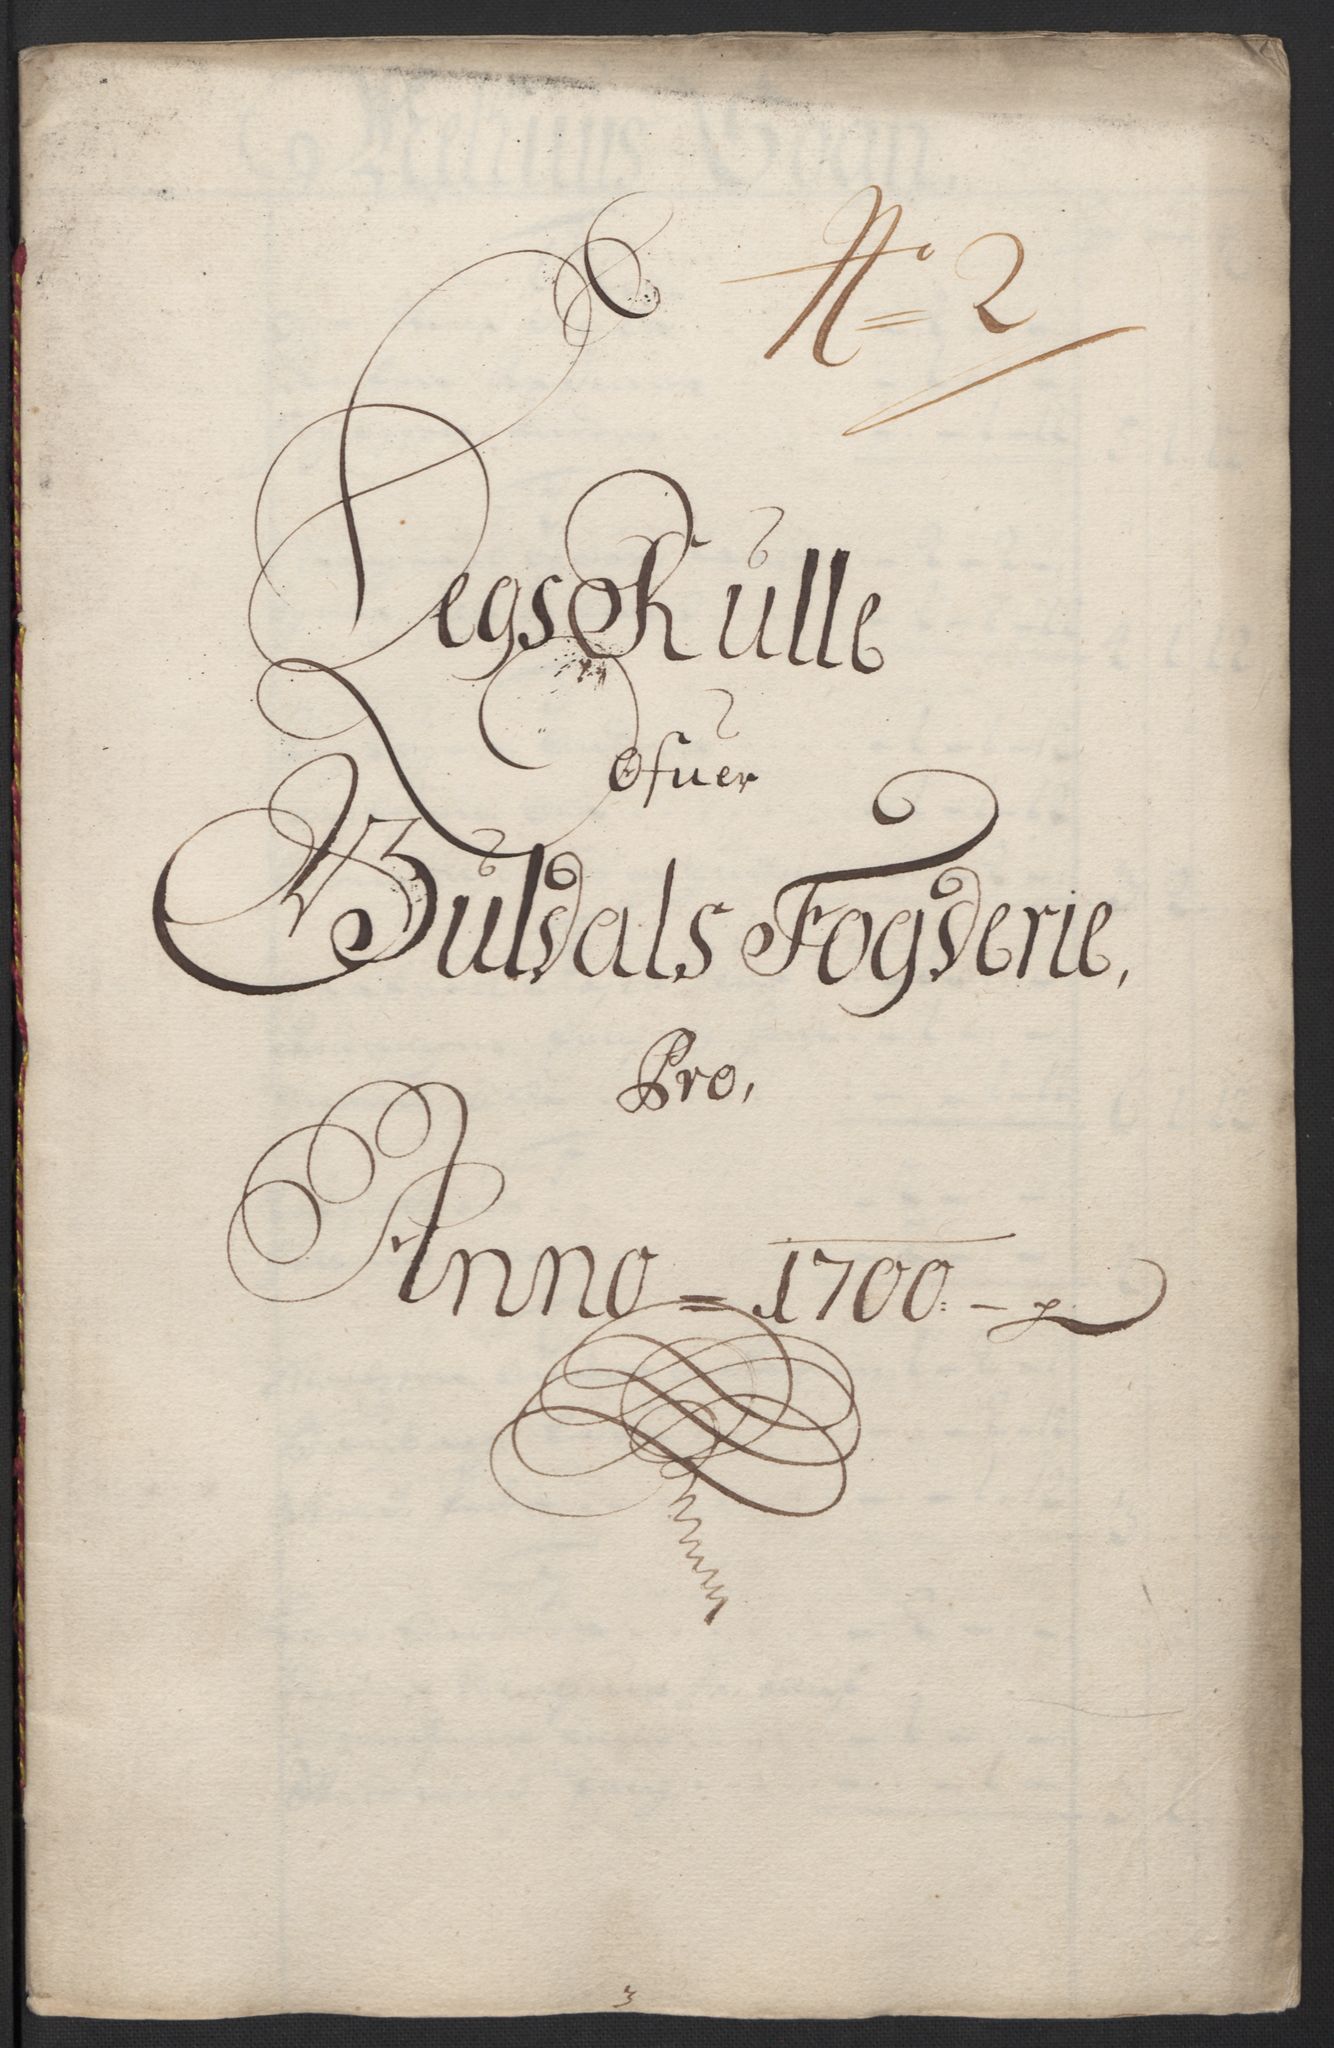 No 2
Legs Rulle
Ofuer
Guldals Fogderie,
Pro,
Anno = 1700. -
3